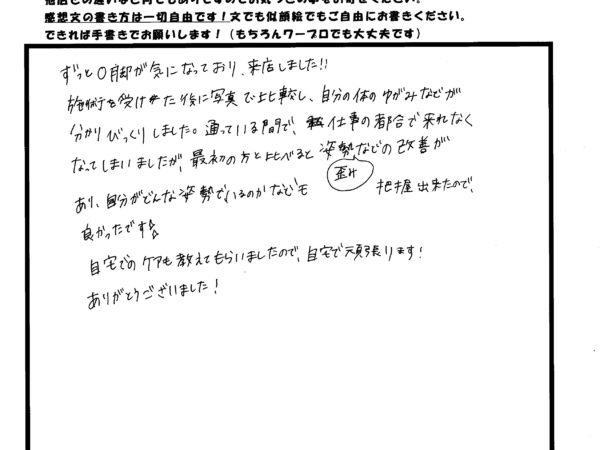 感想文の書き方は一切自由です！文でも似顔絵でもご自由にお書きください。
できれば手書きでお願いします！（もちろんワープロでも大丈夫です）
ずっとO脚が気になっており、来店しました!!
施術を受けた後に写真で比較し、自分の体のゆがみなどが
分かりびっくりしました。通っている間で、仕事の都合で来れなく
なってしまいましたが、最初の方と比べると姿勢などの改善が
あり、自分がどんな姿勢でいるのかなども 歪み 把握出来たので、
良かったです☆
自宅でのケアも教えてもらいましたので、自宅で頑張ります！
ありがとうございました！